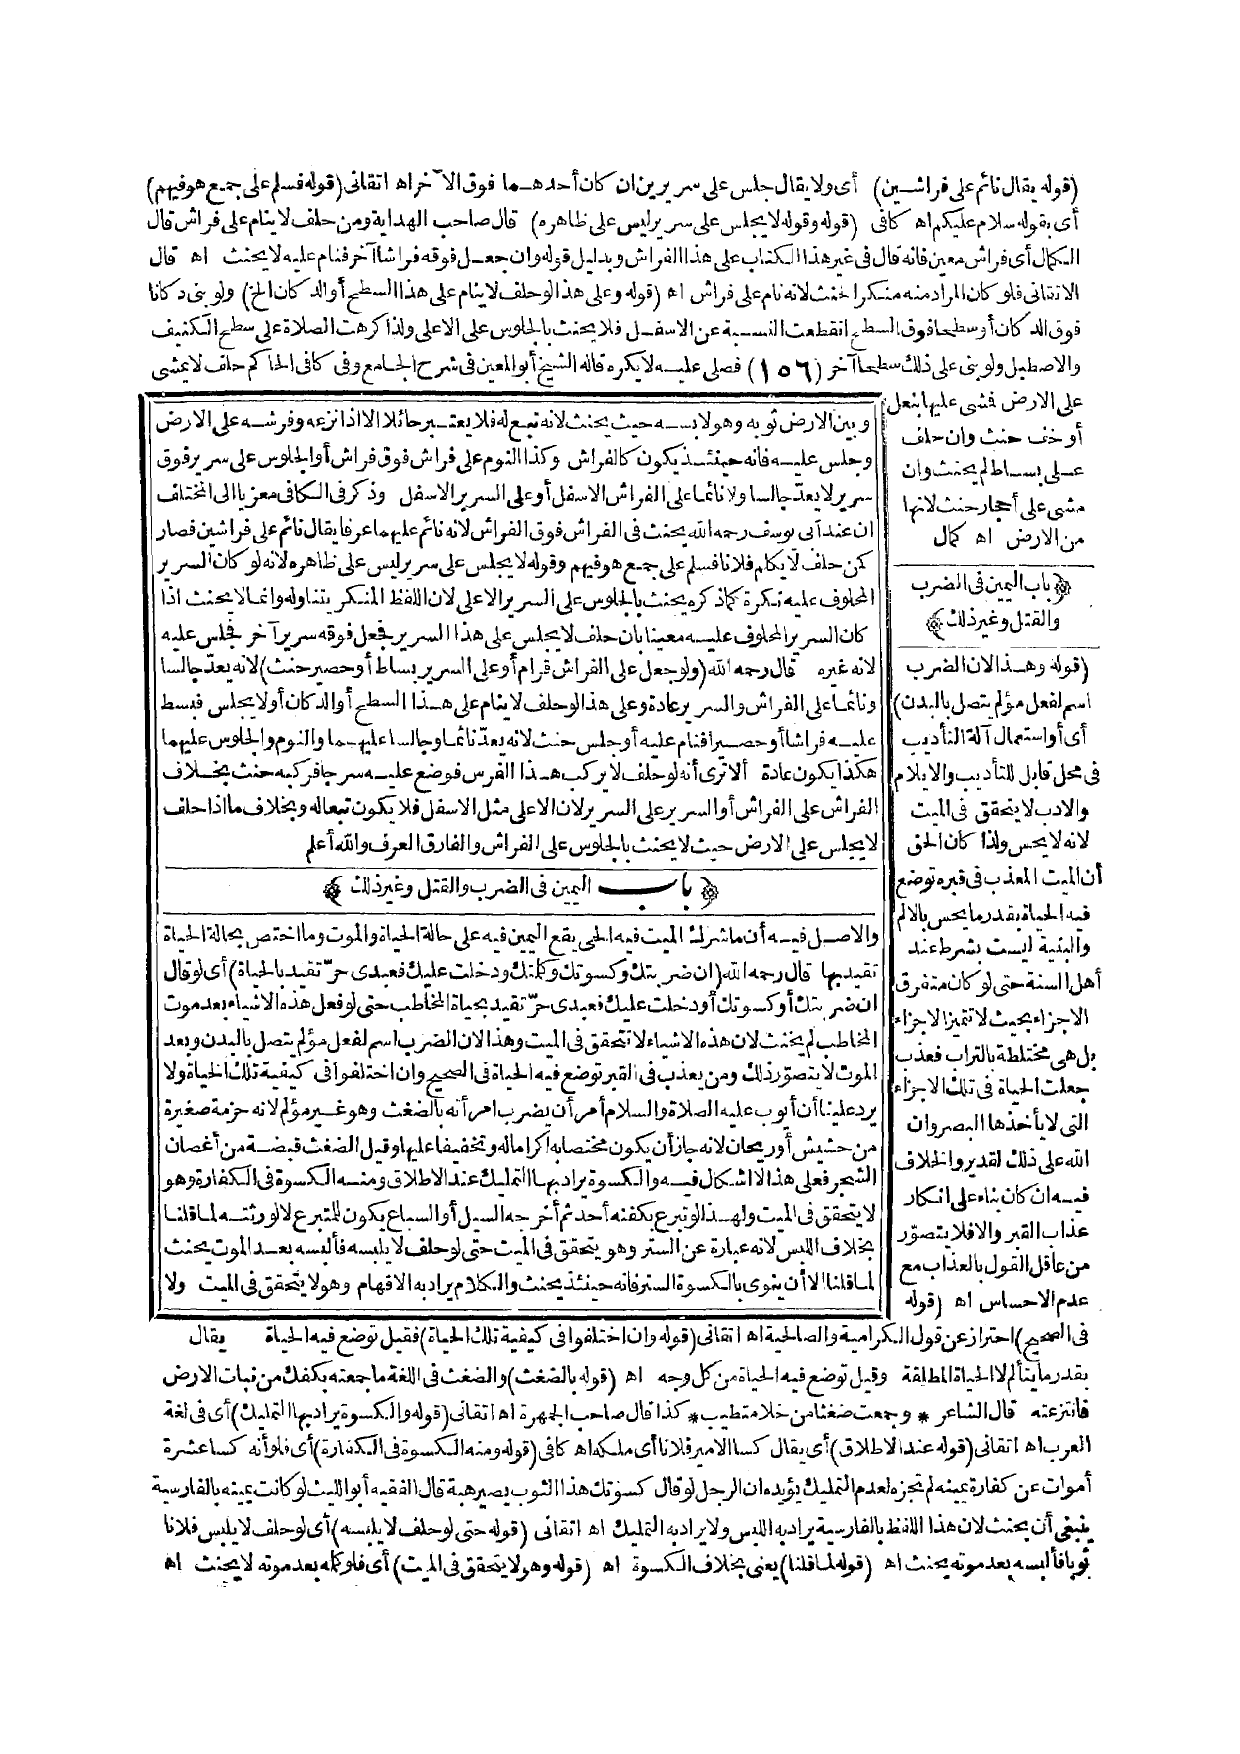 (قوله يقال نائم على فراشين) أى ولا يقال جلس على سريرين ان كان أحدهما فوق الآخر اه اتقانى (قوله فسلم على جمع هو فيهم)
أى بقوله سلام عليكم اه كافى (قوله وقوله لا يجلس على سرير ليس على ظاهره) قال صاحب الهداية ومن حلف لا ينام على فراش قال
الكمال أى فراش معين فانه قال فى غير هذا الكتاب على هذا الفراش وبدليل قوله وان جعل فوقه فراشا آخر فنام عليه لا يحنث اه قال
الاتقانى فلو كان المراد منه منكرا لحنث لانه نام على فراش اه (قوله وعلى هذا لو حلف لا ينام على هذا السطح أو الدكان الخ) ولو بنى دكانا
فوق الدكان أو سطحا فوق السطح انقطعت النسبة عن الاسفل فلا يحنث بالجلوس على الاعلى ولذا كرهت الصلاة على سطح الكنيف
والاصطبل ولو بنى على ذلك سطحا آخر (١٥٦) فصلى عليه لا يكره قاله الشيخ أبو المعين فى شرح الجامع وفى كافى الحاكم حلف لا يمشى
على الارض فمشى عليها بنعل
أو خف حنث وان حلف
على بساط لم يحنث وان
مشى على أحجار حنث لانها
من الارض اه كمال
﴿باب اليمين فى الضرب
والقتل وغير ذلك﴾
(قوله وهذا لان الضرب
اسم لفعل مؤلم يتصل بالبدن)
أى أو استعمال آلة التأديب
فى محل قابل للتأديب والايلام
والادب لا يتحقق فى الميت
لانه لا يحس ولذا كان الحق
أن الميت المعذب فى قبره توضع
فيه الحياة بقدر ما يحس بالالم
والبنية ليست بشرط عند
أهل السنة حتى لو كان متفرق
الاجزاء بحيث لا تتميز الاجزاء
بل هى مختلطة بالتراب فعذب
جعلت الحياة فى تلك الاجزاء
التى لا يأخذها البصر وان
الله على ذلك لقدير والخلاف
فيه ان كان بناء على انكار
عذاب القبر والا فلا يتصور
من عاقل القول بالعذاب مع
عدم الاحساس اه (قوله
وبين الارض ثوبه وهو لابسه حيث يحنث لانه تبع له فلا يعتبر حائلا الا اذا نزعه وفرشه على الارض
وجلس عليه فانه حينئذ يكون كالفراش وكذا النوم على فراش فوق فراش أو الجلوس على سرير فوق
سرير لا يعد جالسا ولا نائما على الفراش الاسفل أو على السرير الاسفل وذكر فى الكافى معزيا الى المختلف
ان عند أبى يوسف رحمه الله يحنث فى الفراش فوق الفراش لانه نائم عليهما عرفا يقال نائم على فراشين فصار
كمن حلف لا يكلم فلانا فسلم على جمع هو فيهم وقوله لا يجلس على سرير ليس على ظاهره لانه لو كان السرير
المحلوف عليه نكرة كما ذكره يحنث بالجلوس على السرير الاعلى لان اللفظ المنكر يتناوله وانما لا يحنث اذا
كان السرير المحلوف عليه معينا بان حلف لا يجلس على هذا السرير فجعل فوقه سريرا آخر فجلس عليه
لانه غيره قال رحمه الله (ولو جعل على الفراش قرام أو على السرير بساط أو حصير حنث) لانه يعد جالسا
ونائما على الفراش والسرير عادة وعلى هذا لو حلف لا ينام على هذا السطح أو الدكان أو لا يجلس فبسط
عليه فراشا أو حصيرا فنام عليه أو جلس حنث لانه يعد نائما وجالسا عليهما والنوم والجلوس عليهما
هكذا يكون عادة ألا ترى أنه لو حلف لا يركب هذا الفرس فوضع عليه سرجا فركبه حنث بخلاف
الفراش على الفراش أو السرير على السرير لان الاعلى مثل الاسفل فلا يكون تبعا له وبخلاف ما اذا حلف
لا يجلس على الارض حيث لا يحنث بالجلوس على الفراش والفارق العرف والله أعلم
﴿باب اليمين فى الضرب والقتل وغير ذلك﴾
والاصل فيه أن ما شرك الميت فيه الحى يقع اليمين فيه على حالة الحياة والموت وما اختص بحالة الحياة
تقيد بها قال رحمه الله (ان ضربتك وكسوتك وكلمتك ودخلت عليك فعبدى حر تقيد بالحياة) أى لو قال
ان ضربتك أو كسوتك أو دخلت عليك فعبدى حر تقيد بحياة المخاطب حتى لو فعل هذه الاشياء بعد موت
المخاطب لم يحنث لان هذه الاشياء لا تتحقق فى الميت وهذا لان الضرب اسم لفعل مؤلم يتصل بالبدن وبعد
الموت لا يتصور ذلك ومن يعذب فى القبر توضع فيه الحياة فى الصحيح وان اختلفوا فى كيفية تلك الحياة ولا
يرد علينا أن أيوب عليه الصلاة والسلام أمر أن يضرب امرأته بالضغث وهو غير مؤلم لانه حزمة صغيرة
من حشيش أو ريحان لانه جاز أن يكون مختصا به اكراما له وتخفيفا عليها وقيل الضغث قبضة من أغصان
الشجر فعلى هذا لا اشكال فيه والكسوة يراد بها التمليك عند الاطلاق ومنه الكسوة فى الكفارة وهو
لا يتحقق فى الميت ولهذا لو تبرع بكفنه أحد ثم أخرجه السيل أو السباع يكون للمتبرع لا لورثته لما قلنا
بخلاف اللبس لانه عبارة عن الستر وهو يتحقق فى الميت حتى لو حلف لا يلبسه فألبسه بعد الموت يحنث
لما قلنا الا أن ينوى بالكسوة الستر فانه حينئذ يحنث والكلام يراد به الافهام وهو لا يتحقق فى الميت ولا
فى الصحيح) احتراز عن قول الكرامية والصالحية اه اتقانى (قوله وان اختلفوا فى كيفية تلك الحياة) فقيل توضع فيه الحياة يقال
بقدر ما يتألم لا الحياة المطلقة وقيل توضع فيه الحياة من كل وجه اه (قوله بالضغث) والضغث فى اللغة ما جمعته بكفك من نبات الارض
فانتزعته قال الشاعر * وجمعت ضغثا من خلا متطيب * كذا قال صاحب الجمهرة اه اتقانى (قوله والكسوة يراد بها التمليك) أى فى لغة
العرب اه اتقانى (قوله عند الاطلاق) أى يقال كسا الامير فلانا أى ملكه اه كافى (قوله ومنه الكسوة فى الكفارة) أى فلو أنه كسا عشرة
أموات عن كفارة يمينه لم تجزه لعدم التمليك يؤيده ان الرجل لو قال كسوتك هذا الثوب يصير هبة قال الفقيه أبو الليث لو كانت يمينه بالفارسية
ينبغى أن يحنث لان هذا اللفظ بالفارسية يراد به اللبس ولا يراد به التمليك اه اتقانى (قوله حتى لو حلف لا يلبسه) أى لو حلف لا يلبس فلانا
ثوبا فألبسه بعد موته يحنث اه (قوله لما قلنا) يعنى بخلاف الكسوة اه (قوله وهو لا يتحقق فى الميت) أى فلو كلمه بعد موته لا يحنث اه